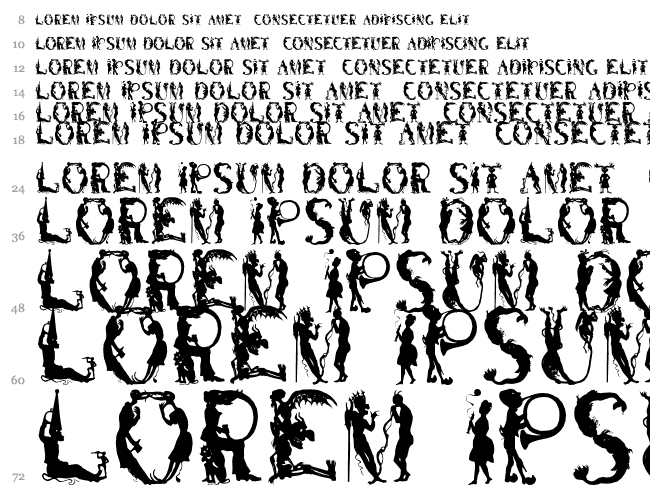 8 LOREM IPSUM DOLOR SIT AMET CONSECTETUER ADIPISCING ELIT
10 LOREM IPSUM DOLOR SIT AMET CONSECTETUER ADIPISCING ELIT
12 LOREM IPSUM DOLOR SIT AMET CONSECTETUER ADIPISCING ELIT
14 LOREM IPSUM DOLOR SIT AMET CONSECTETUER ADIPIS
16 LOREM IPSUM DOLOR SIT AMET CONSECTETUER
18 LOREM IPSUM DOLOR SIT AMET CONSECTE
24 LOREM IPSUM DOLOR SIT AMET
36 LOREM IPSUM DOLOR
48 LOREM IPSUM DO
60 LOREM IPSUM
72 LOREM IPS